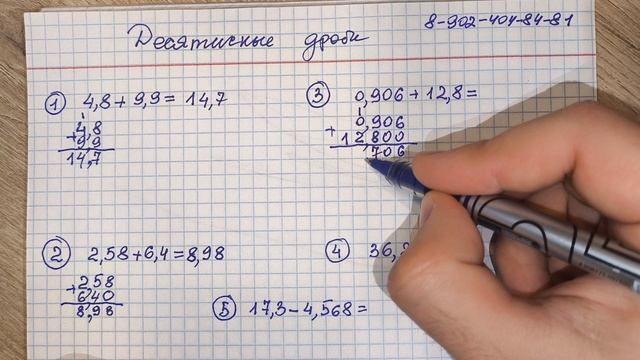 Десятичные дроби
8-902-404-84-81
① 4,8 + 9,9 = 14,7
1
+ 4,8
9,9
14,7
③ 0,906 + 12,8 =
1
+ 0,906
12,800
,706
② 2,58 + 6,4 = 8,98
+ 2,58
6,40
8,98
④ 36,
⑤ 17,3 - 4,568 =